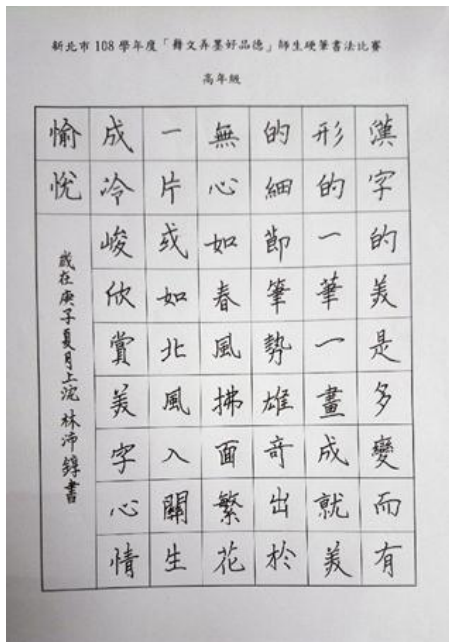 新北市108學年度「舞文弄墨好品德」師生硬筆書法比賽
高年級
漢字的美是多變而有
形的一華一畫成就美
的細節筆勢雄奇出於
無心如春風拂面繁花
一片或如北風入關生
成冷峻欣賞美字心情
愉悅
歲在庚子夏月上浣 林沛錞書